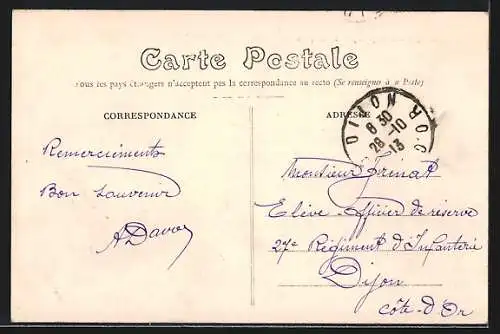 Carte Postale
Tous les pays étrangers n'acceptent pas la correspondance au recto (Se renseigner à la Poste)
CORRESPONDANCE
ADRESSE
DIJON
8 30
28 -10
13
CÔTE D'OR
Remerciements
Bon Souvenir
Monsieur
Elève-officier de réserve
27e Régiment d'Infanterie
Dijon
Côte-d'Or